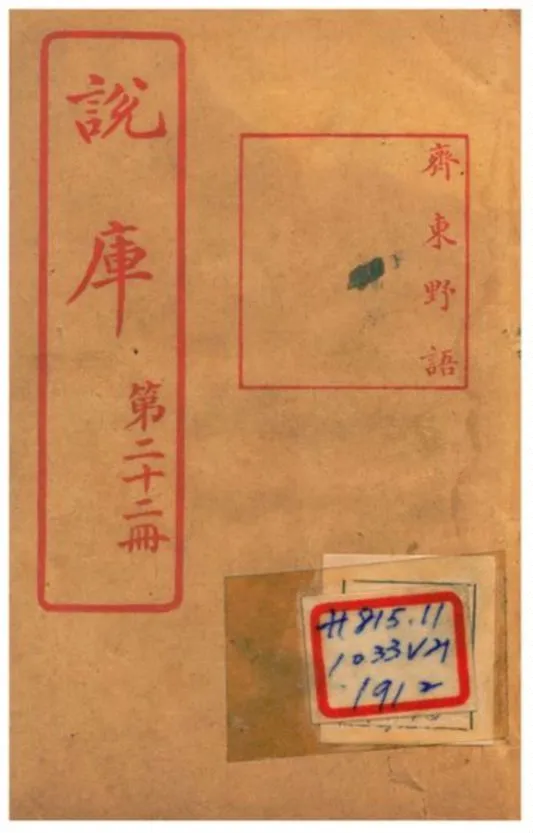 齊東野語
說庫
第二十二冊
H 815.11
1033 V21
1912